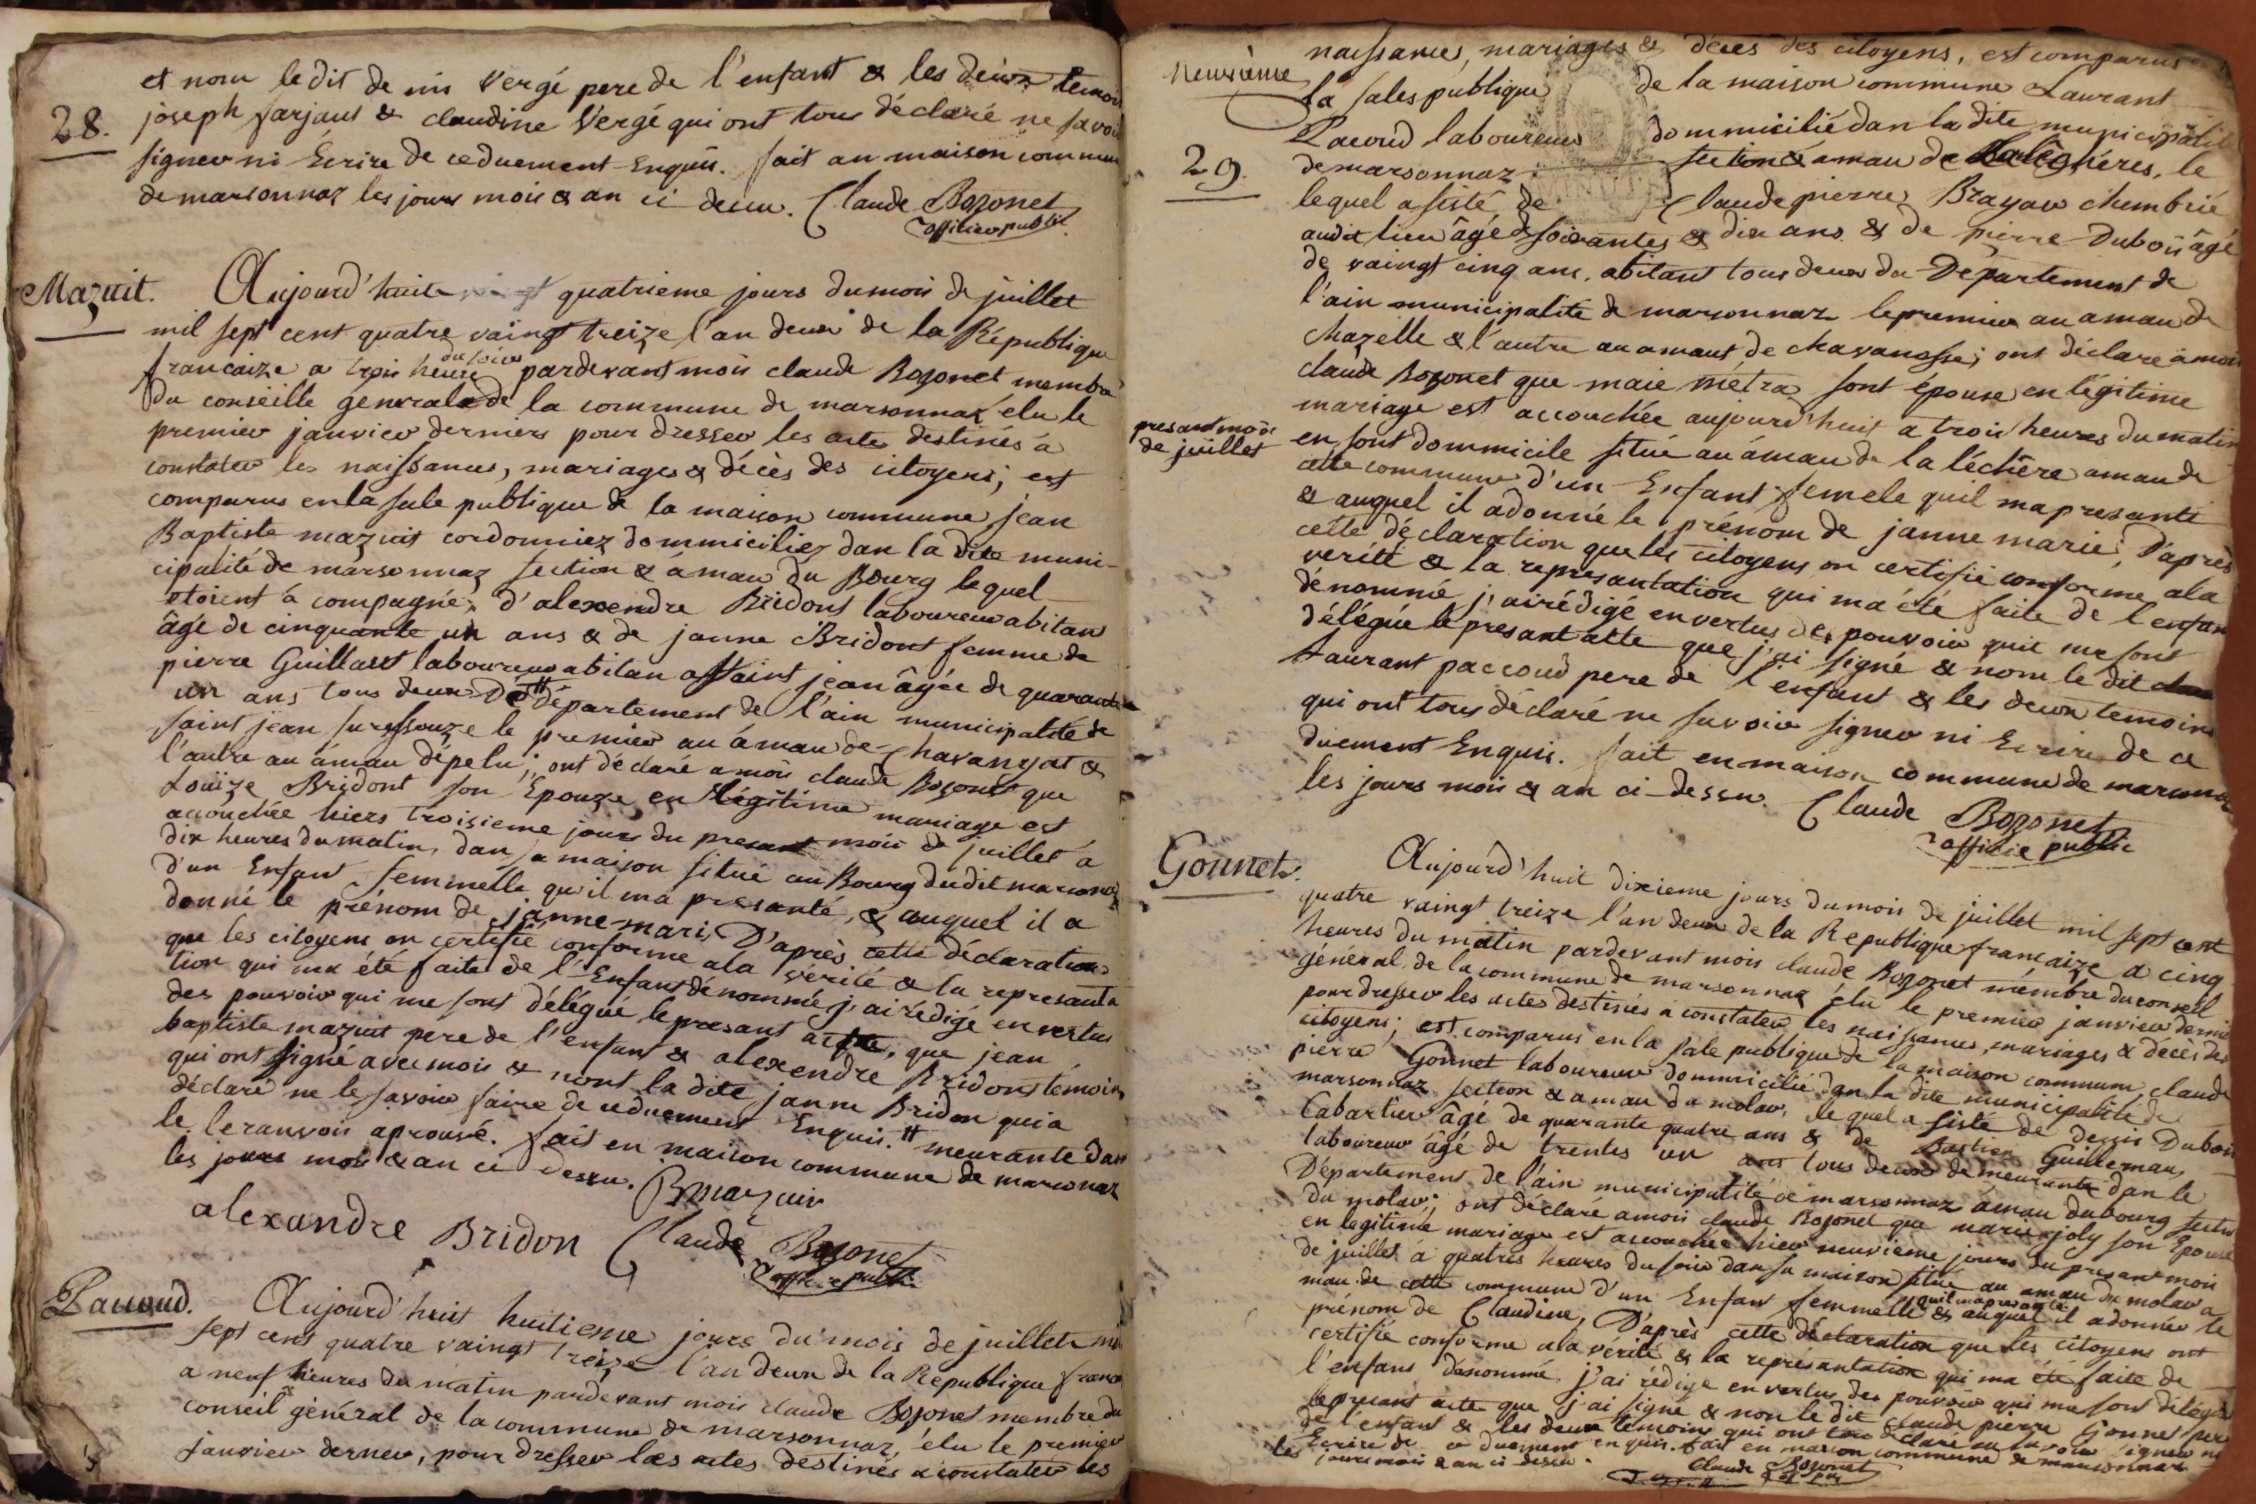 et nom le dit de nis Vergé pere de l'enfant & les deux temoin
28.
joseph farjaut & claudine Vergé qui ont tous déclaré ne savoi
signer ni Ecrire de ce duement Enquis. fait an maison commun
de marsonnaz les jours mois & an ci dessu. Claude Bozonet
officier public
Mazuit.
Aujourd'huit vingt quatrieme jours du mois de juillet
mil sept cent quatre vaingt treize l'an deux de la République
francaize a trois heure du soire pardevant mois claude Bozonet membre
du conseille général de la commune de marsonnaz élu le
premier janvier derniers pour dresser les acte destinés à
constater les naissances, mariages & décès des citoyens; est
comparus en la sale publique de la maison commune jean
Baptiste mazuit cordonniez dommiciliez dan la dite muni-
cipalité de marsonnaz section & ámau du Bourg lequel
etoient à compagné d'alexendre Bridont laboureur abitan
âgé de cinquante un ans & de janne Bridont femme de
pierre Guillaut laboureur abitan assaint jean âgée de quarante
un ans tous deux Dé# département de l'ain municipalité de
saint jean suressouze le premier au ámau de Chavanyat &
l'autre au ámau dépelu; ont déclaré amois claude Bozonet que
Louïze Bridont son Epouze en légitime mariage est
accouchée hiers troisieme jours du presant mois de juillet à
dix heures du matin, dan sa maison situé au Bourg dudit marsonnaz
d'un Enfant femmelle qu'il ma presanté, & auquel il a
donné le prénom de janne mari, D'après cette déclaration
que les citoyens on certifié conforme ala vérité & la represanta
tion qui ma été faite de l'Enfant dénommé, j'ai rédigé en vertus
des pouvoir qui me sont délégué le presant acte, que jean
baptiste mazuit pere de l'enfant & alexendre Bridont témoin
qui ont signé avec mois & nont la dite janne Bridon qui a
déclaré ne le savoir faire de ce duement Enquis. # meurante dan
le, le ranvois aprouvé. fait en maison commune de marsonnaz
les jours mois & an ci dessu. B mazuir
alexandre Bridon Claude Bozonet
officier public
Paccoud.
Aujourd'huit huitieme jours du mois de juillet mil
sept cent quatre vaingt treize l'an deux de la République franca
a neuf heures du matin pardevant mois claude Bozonet membre du
conseil général de la commune de marsonnaz, élu le premier
janvier dernier, pour dresser les actes destinés a constater les
naissances, mariages & déces des citoyens, est comparus
neuvième
la sales publique de la maison commune Laurant
Pacoud laboureur dommicilié dan la dite municipalit
29.
de marsonnaz section & amau de la léchères, le
lequel asisté de Claude pierre Brayar chembrié
audit lieu âgé de soixantes & dix ans & de pierre Duboi âgé
de vaingt cinq ans. abitant tous deux du Département de
l'ain municipalité de marsonnaz le premier au amau de
chazelle & l'autre au amaut de chavanosse; ont déclaré à mois
claude Bozonet que maie métra sont épouse en légitime
mariage est accouchée aujourd'huit a trois heures du matin
presant mois
de juillet
en sont dommicile situé au ámau de la léchère amau de
cette commune d'un Enfant femele quil ma presanté
& auquel il a donné le prénom de janne marie; D'après
cette déclaration que les citoyens on certifié conforme ala
verité & la represantation qui ma été faite de l'enfan
dénommé j'ai rédigé en vertus des pouvoir qui me sont
délégué le presant atte que j'ai signé & nom le dit
Laurant paccoud pere de l'enfant & les deux temoin
qui ont tous déclaré ne savoir signer ni Ecrire de ce
duement Enquis. fait en maison commune de marsonnaz
les jours mois & an ci-dessu. Claude Bozonet
officie public
Gonnet.
Aujourd'huit dixieme jours du mois de juillet mil sept cent
quatre vaingt treize l'an deux de la Republique francaize a cinq
heures du matin pardevant mois claude Bozonet mémbre du conseil
général de la commune de marsonnaz élu le premier janvier dernié
pour dresser les actes destinés à constater les naissances, mariages & décès des
citoyens; est comparus en la sale publique de la maison commune claude
pierre Gonnet laboureur dommicilié dan la dite municipalité de
marsonnaz section & amau du molar, le quel a sisté de denis Duboi
Cabartier âgé de quarante quatre ans & de Bastien Guilleman,
laboureur âgé de trentes un ans tous deux demeurante dan le
Département de l'ain municipalité de marsonnaz ámau du bourg section
du molar; ont déclaré amois claude Bozonet que marie joly son Epouse
en legitime mariage est accouchée hier neuvième jours du presant mois
de juillet à quatres heures du soir dan sa maison situé au amau du molar a
mau de cette commune d'un Enfant femmelle quil ma presante & auquel il adonnée le
prénom de Claudine, D'après cette déclaration que les citoyens ont
certifié conforme ala vérité & la représantation qui ma été faite de
l'enfant dénommé j'ai rédigé en vertus des pouvoir qui me sont délégué
le presant acte que j'ai signé & non le dit claude pierre Gonnet pere
de l'enfant & les deux temoins qui ont tous déclaré ne savoir signer ni
Ecrire de ce duement enquis. fait en maison commune de marsonnaz
les jours mois & an ci dessu. Claude Bozonet